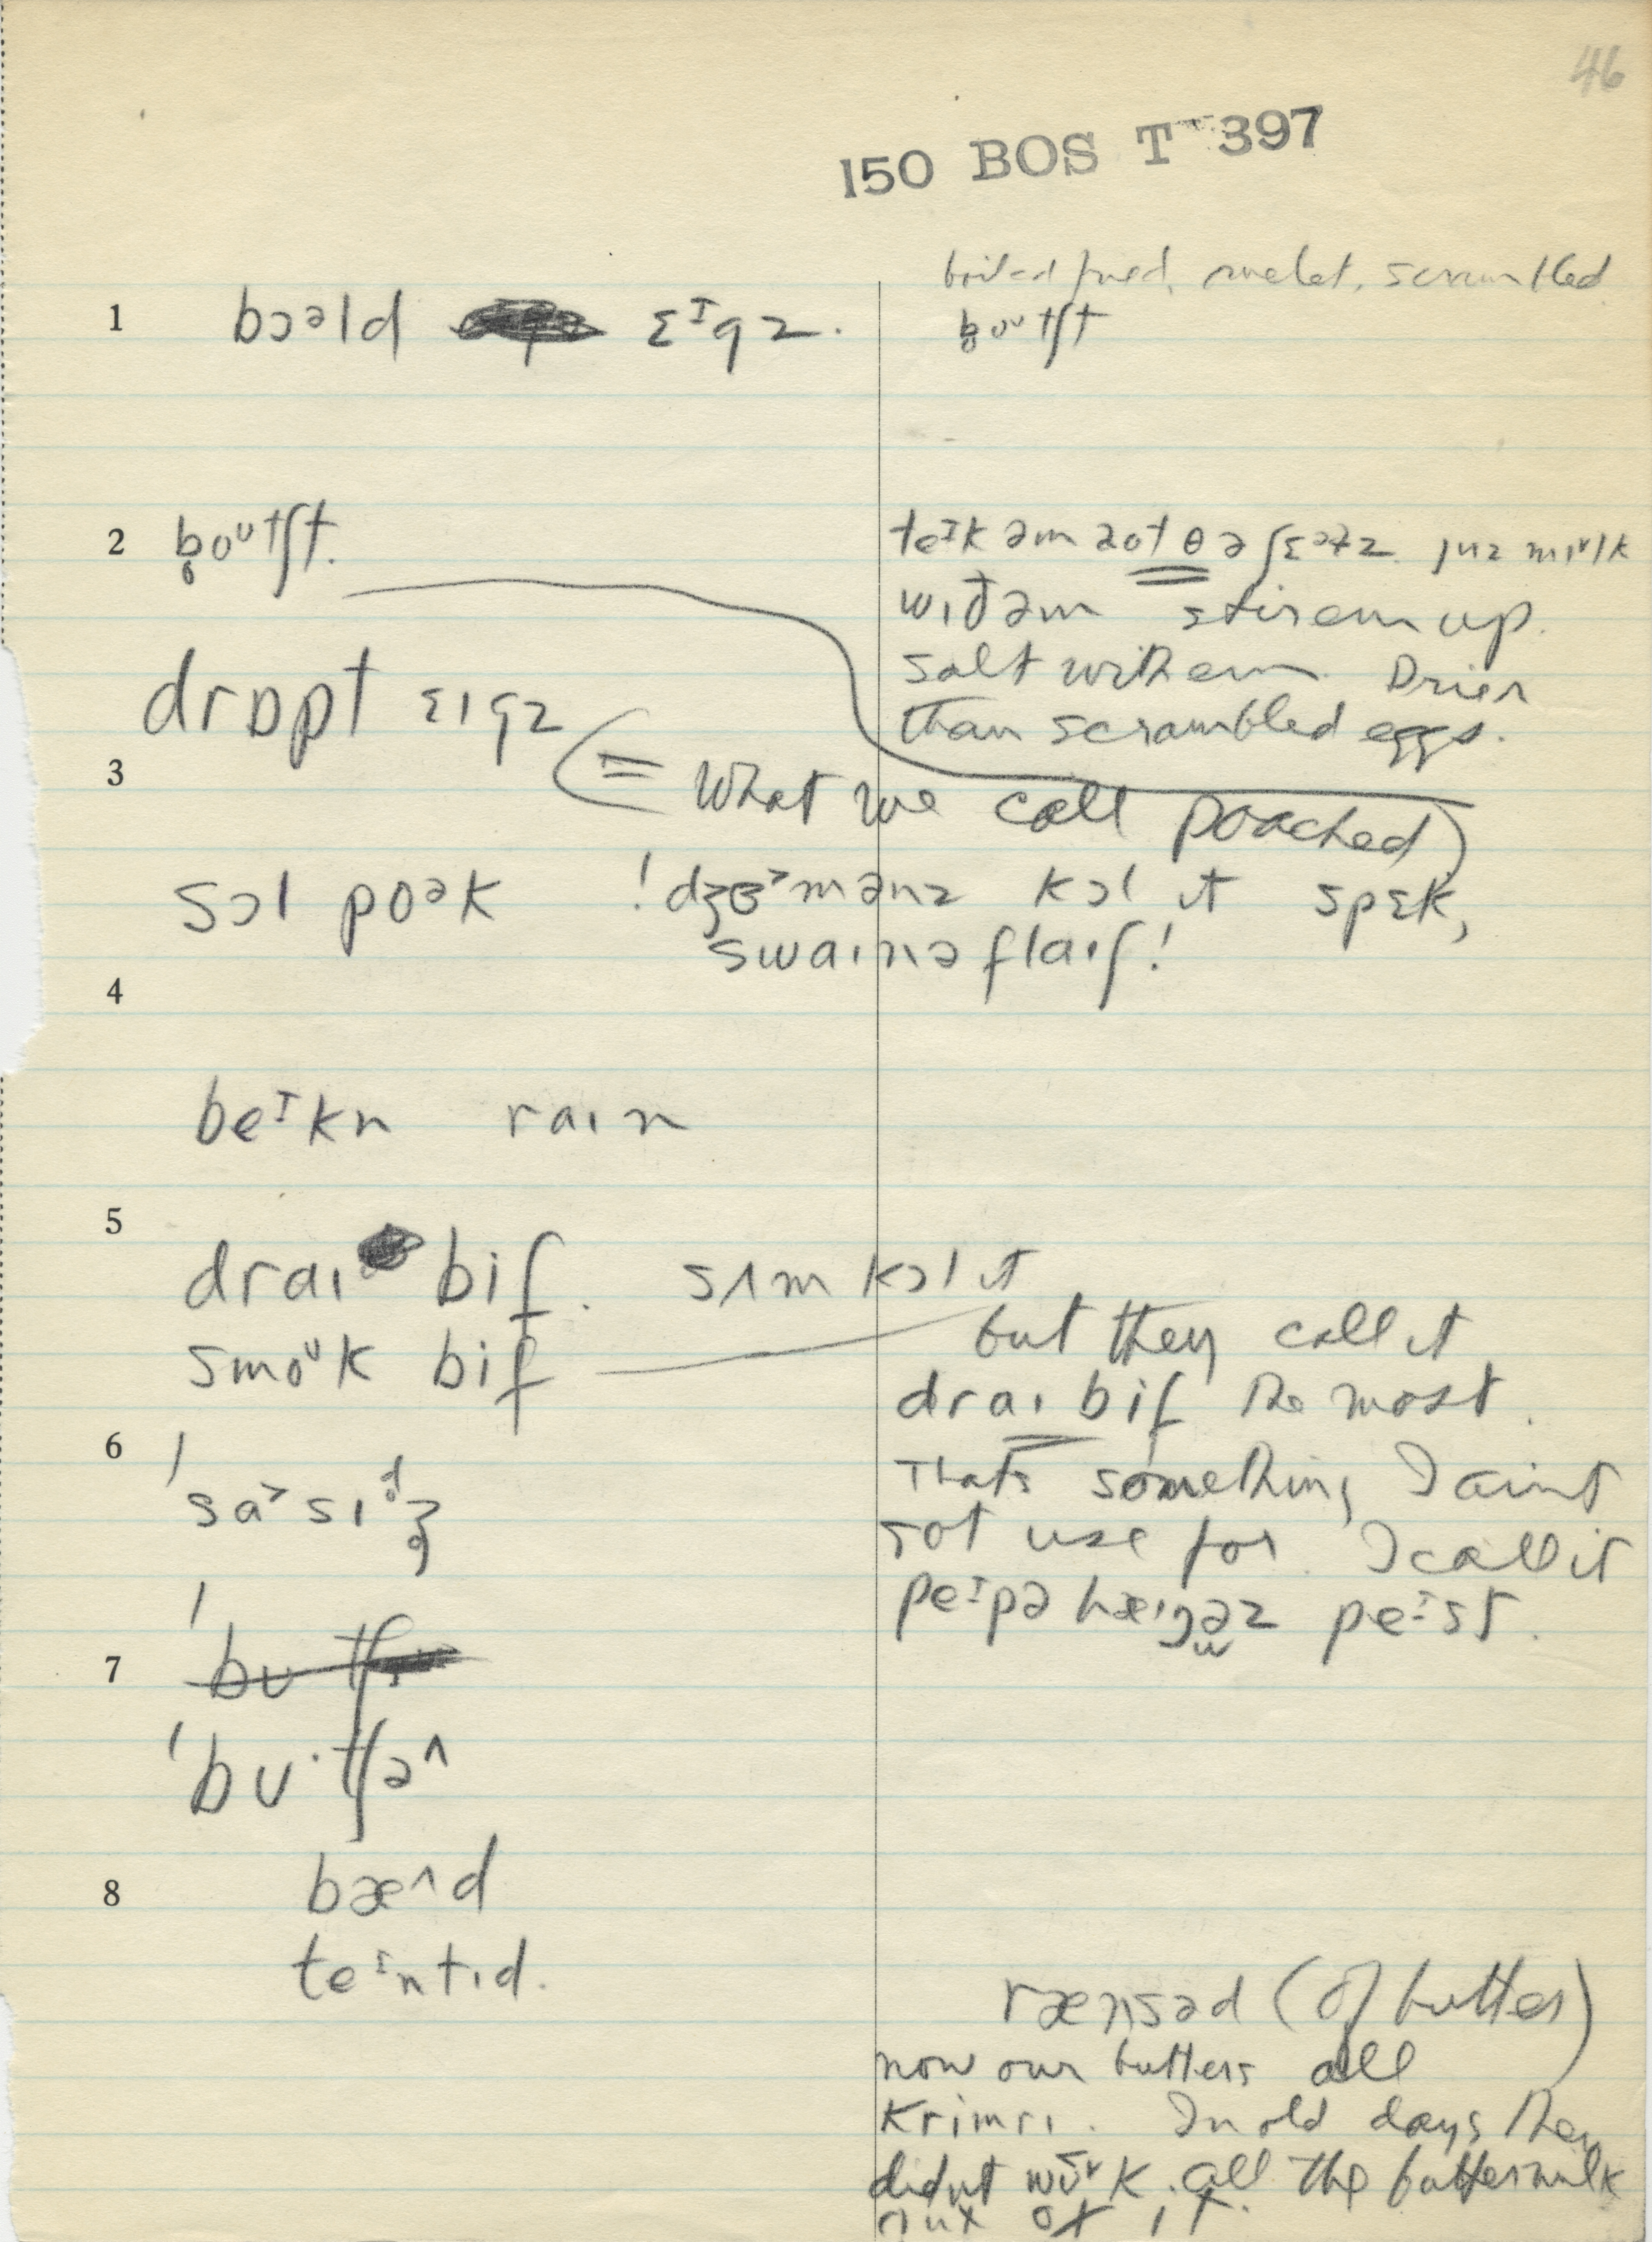 46
150 BOS T 397
boiled fried, omelet, scrambled
1 bɔəld ɛᴵgz.
b̥oᶷtʃt
2 b̥oᶷtʃt.
teᴵk əm aot θə ʃɛətz. juz mɪᶷlk
wɪđəm stir em up.
salt with em. Drier
than scrambled eggs.
drɒpt ɛɪgz
3 (= What we call poached)
sɔl poək ! dʒɜ˃mənz kɔl ɪt spɛk,
swaɪnəflaɪʃ!
4
beᴵkn raɪn
5
draɪ bif. sʌm kɔl ɪt
but they call it
smoᶷk bif
draɪ bif the most.
6
Thats something I aint
'sa˃sɪdʒ
got use for. I call it
peᴵpə hæŋəz peᴵst.
7 'bʊtʃ
'bʊ·tʃəʌ
8 bæʌd
teᴵntɪd.
rænsəd (of butter)
now our butters all
krimrɪ. In old days they
didnt wɜk all the buttermilk
aut əv ɪt.